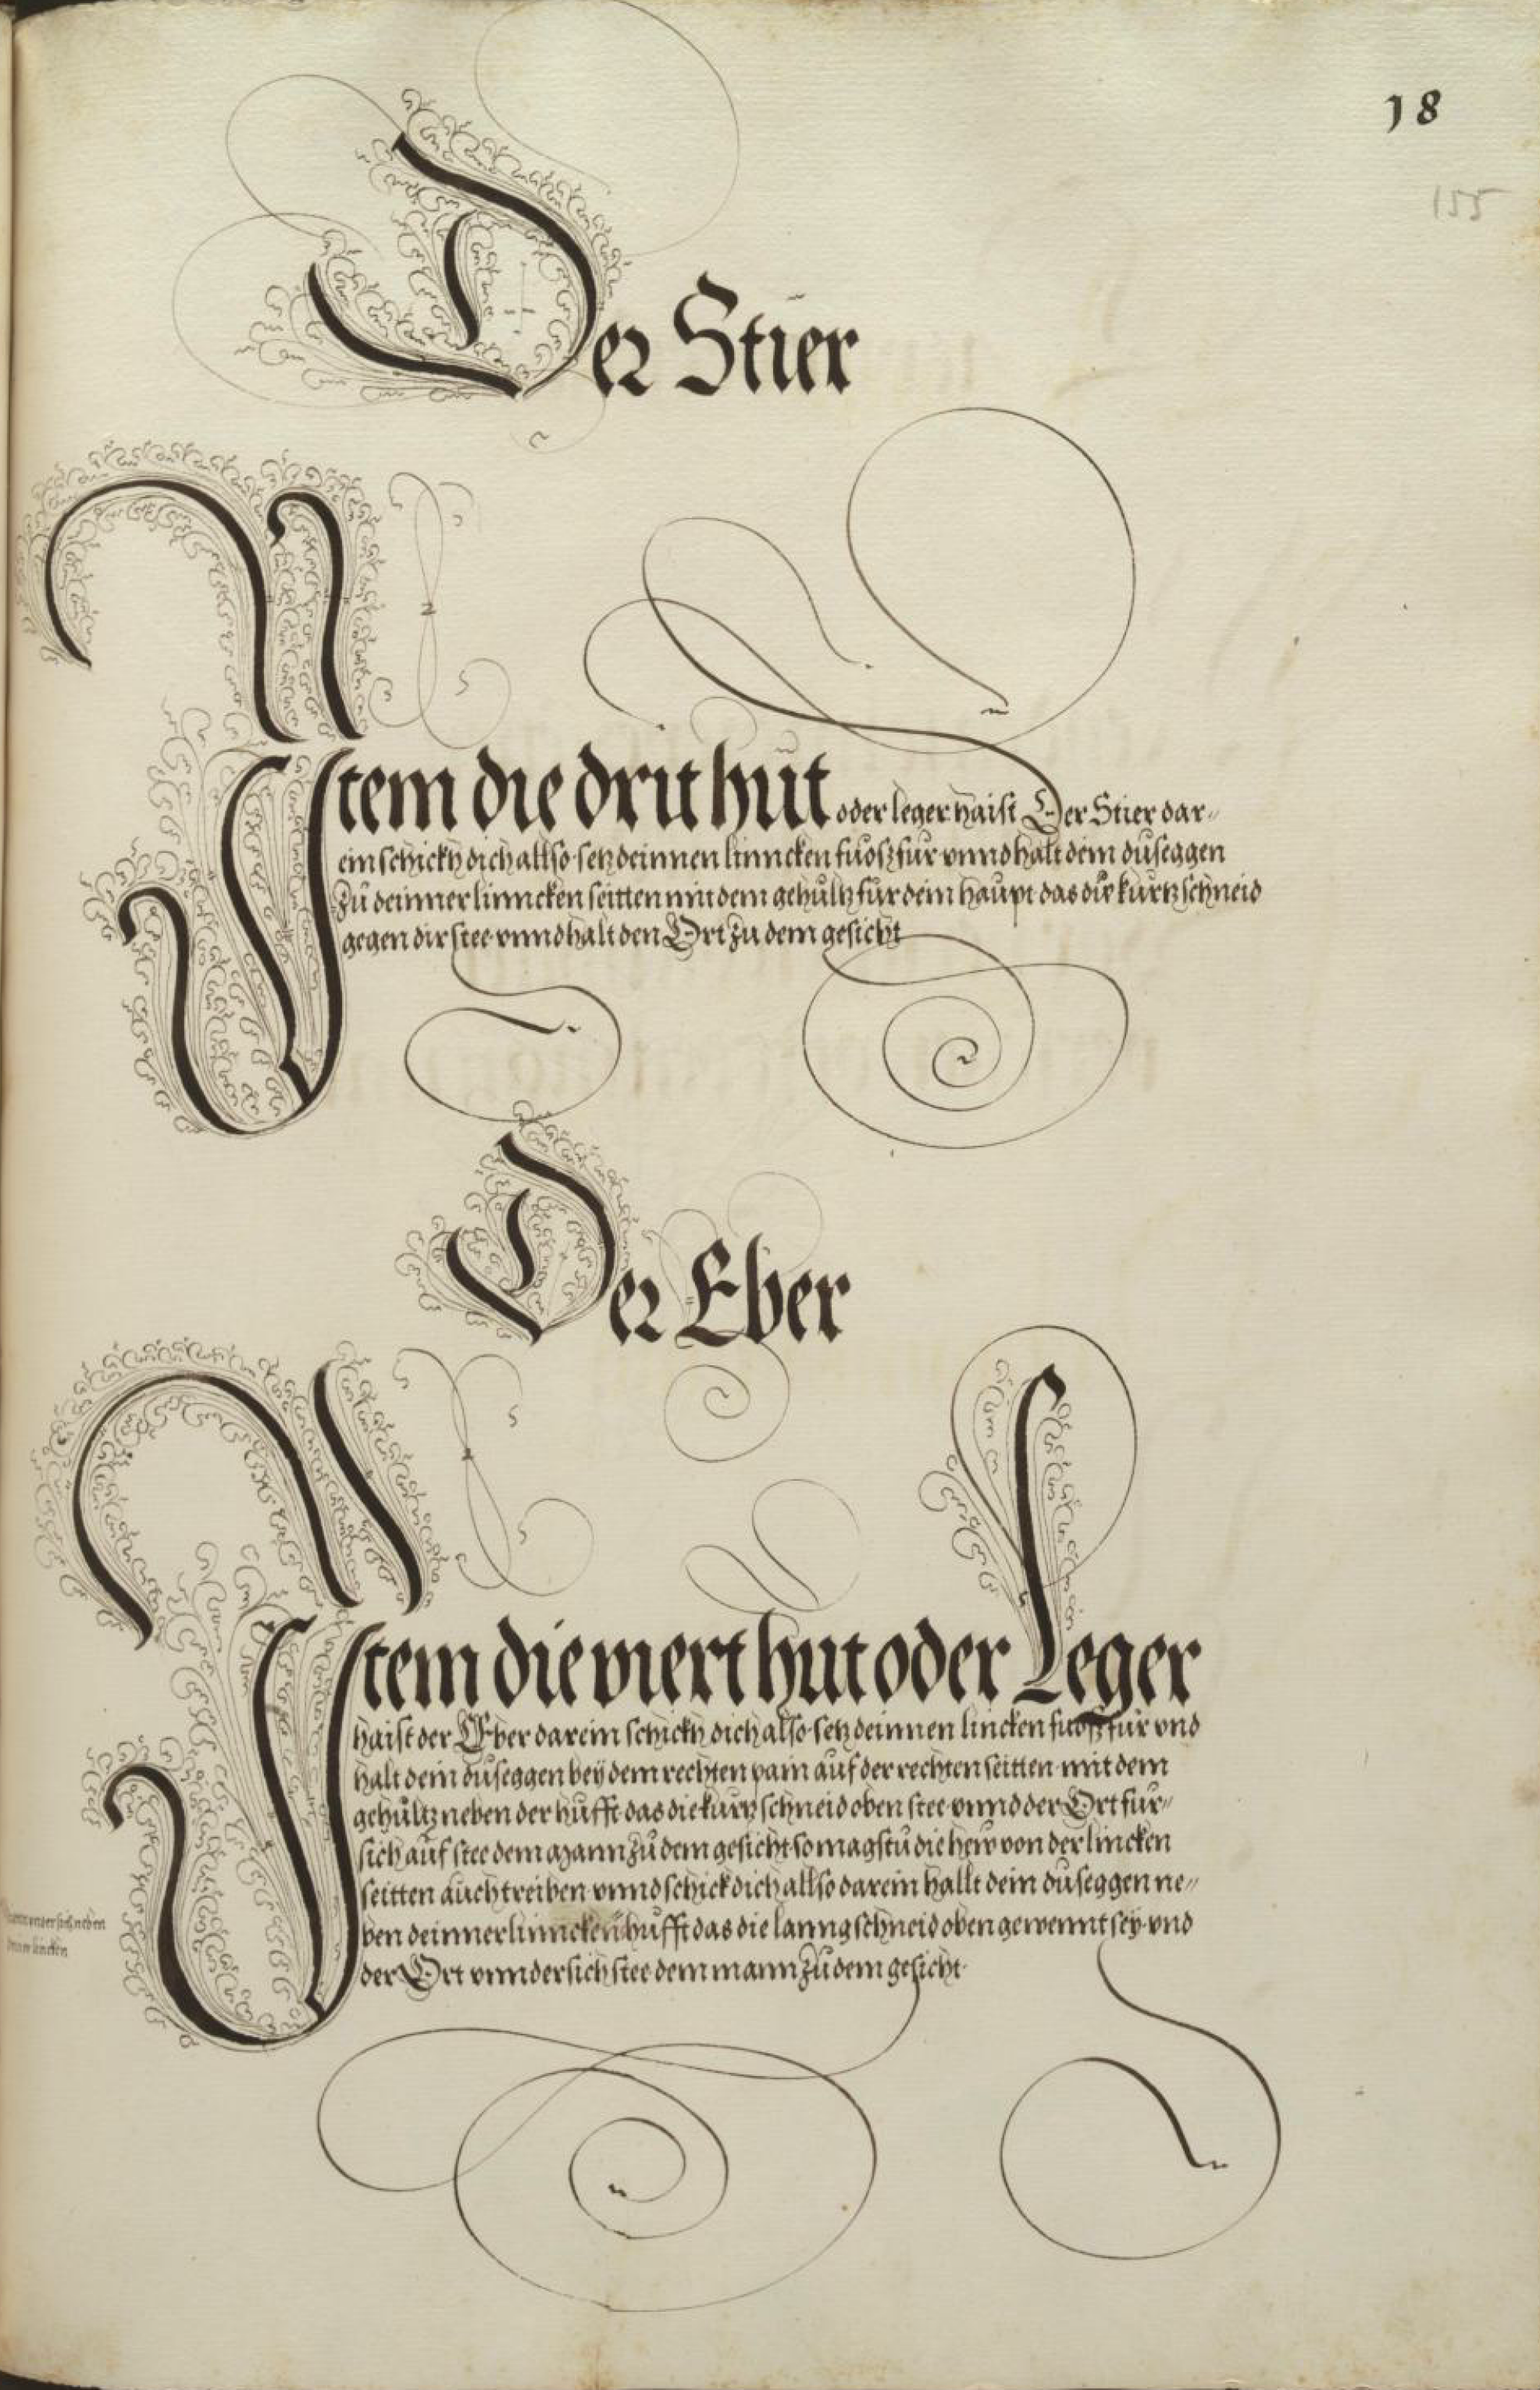 18
155
Der Stier
Item die drit hůt oder leger haist Der Stier dar-
ein schickh dich allso setz deinnen linncken fůosz für vnnd halt dein důseggen
Zů deinner linncken seitten mit dem gehůltz für dein haupt das die kurtz schneid
gegen dir stee vnnd halt den Ort zu dem gesicht
Der Eber
Item die viert hut oder Leger
haist der Eber darein schickh dich also setz deinnen lincken fuosz für vnd
halt dein důseggen beÿ dem rechten pain auf der rechten seitten mit dem
gehůltz neben der hufft das die kurtz schneid oben stee vnnd der Ort für-
sich auf stee dem mann zů dem gesicht so magstu die hew von der lincken
seitten auch treiben vnnd schick dich allso darein hallt dein důseggen ne-
ben deinner linncken hufft das die lanng schneid oben gewennt seÿ vnd
der Ort vnndersich stee dem mann zů dem gesicht
vndersich neben
lincken